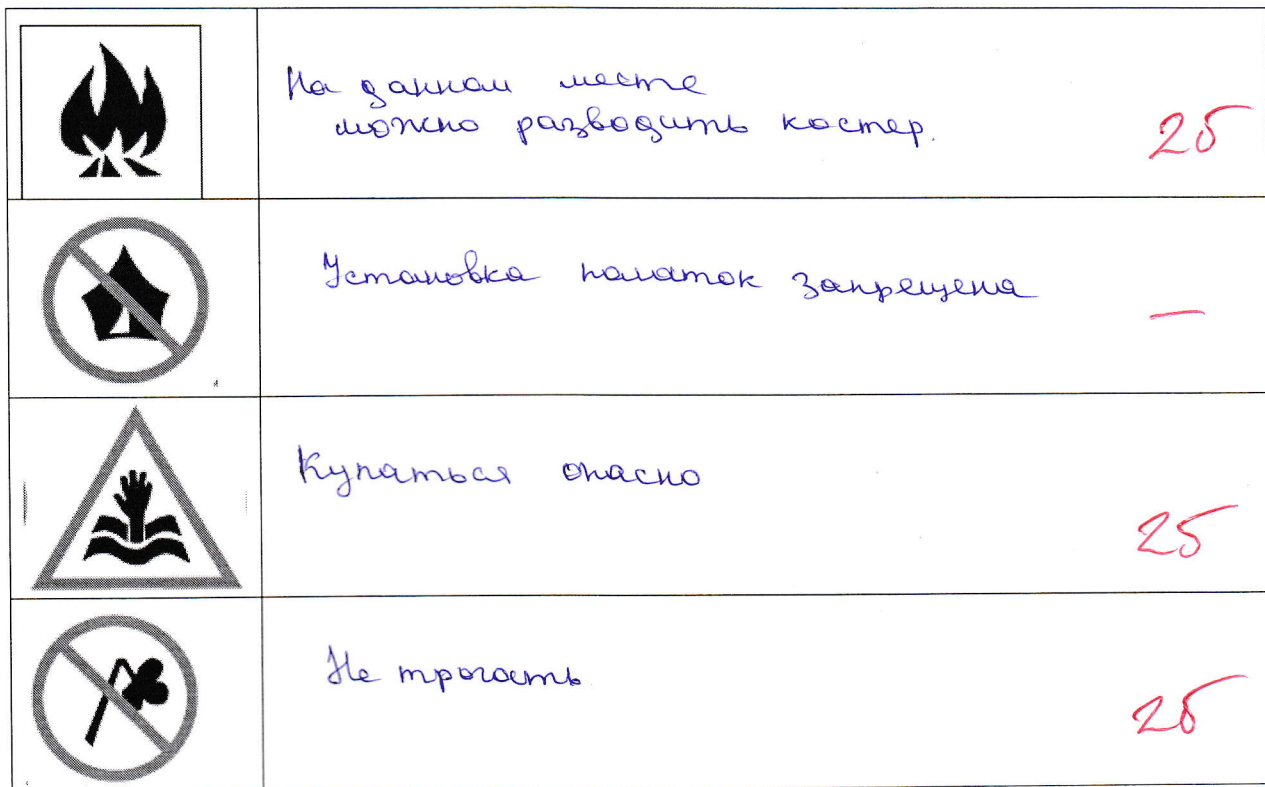 На данном месте
можно разводить костер.
2б
Установка палаток запрещена
—
Купаться опасно
2б
Не трогать
2б